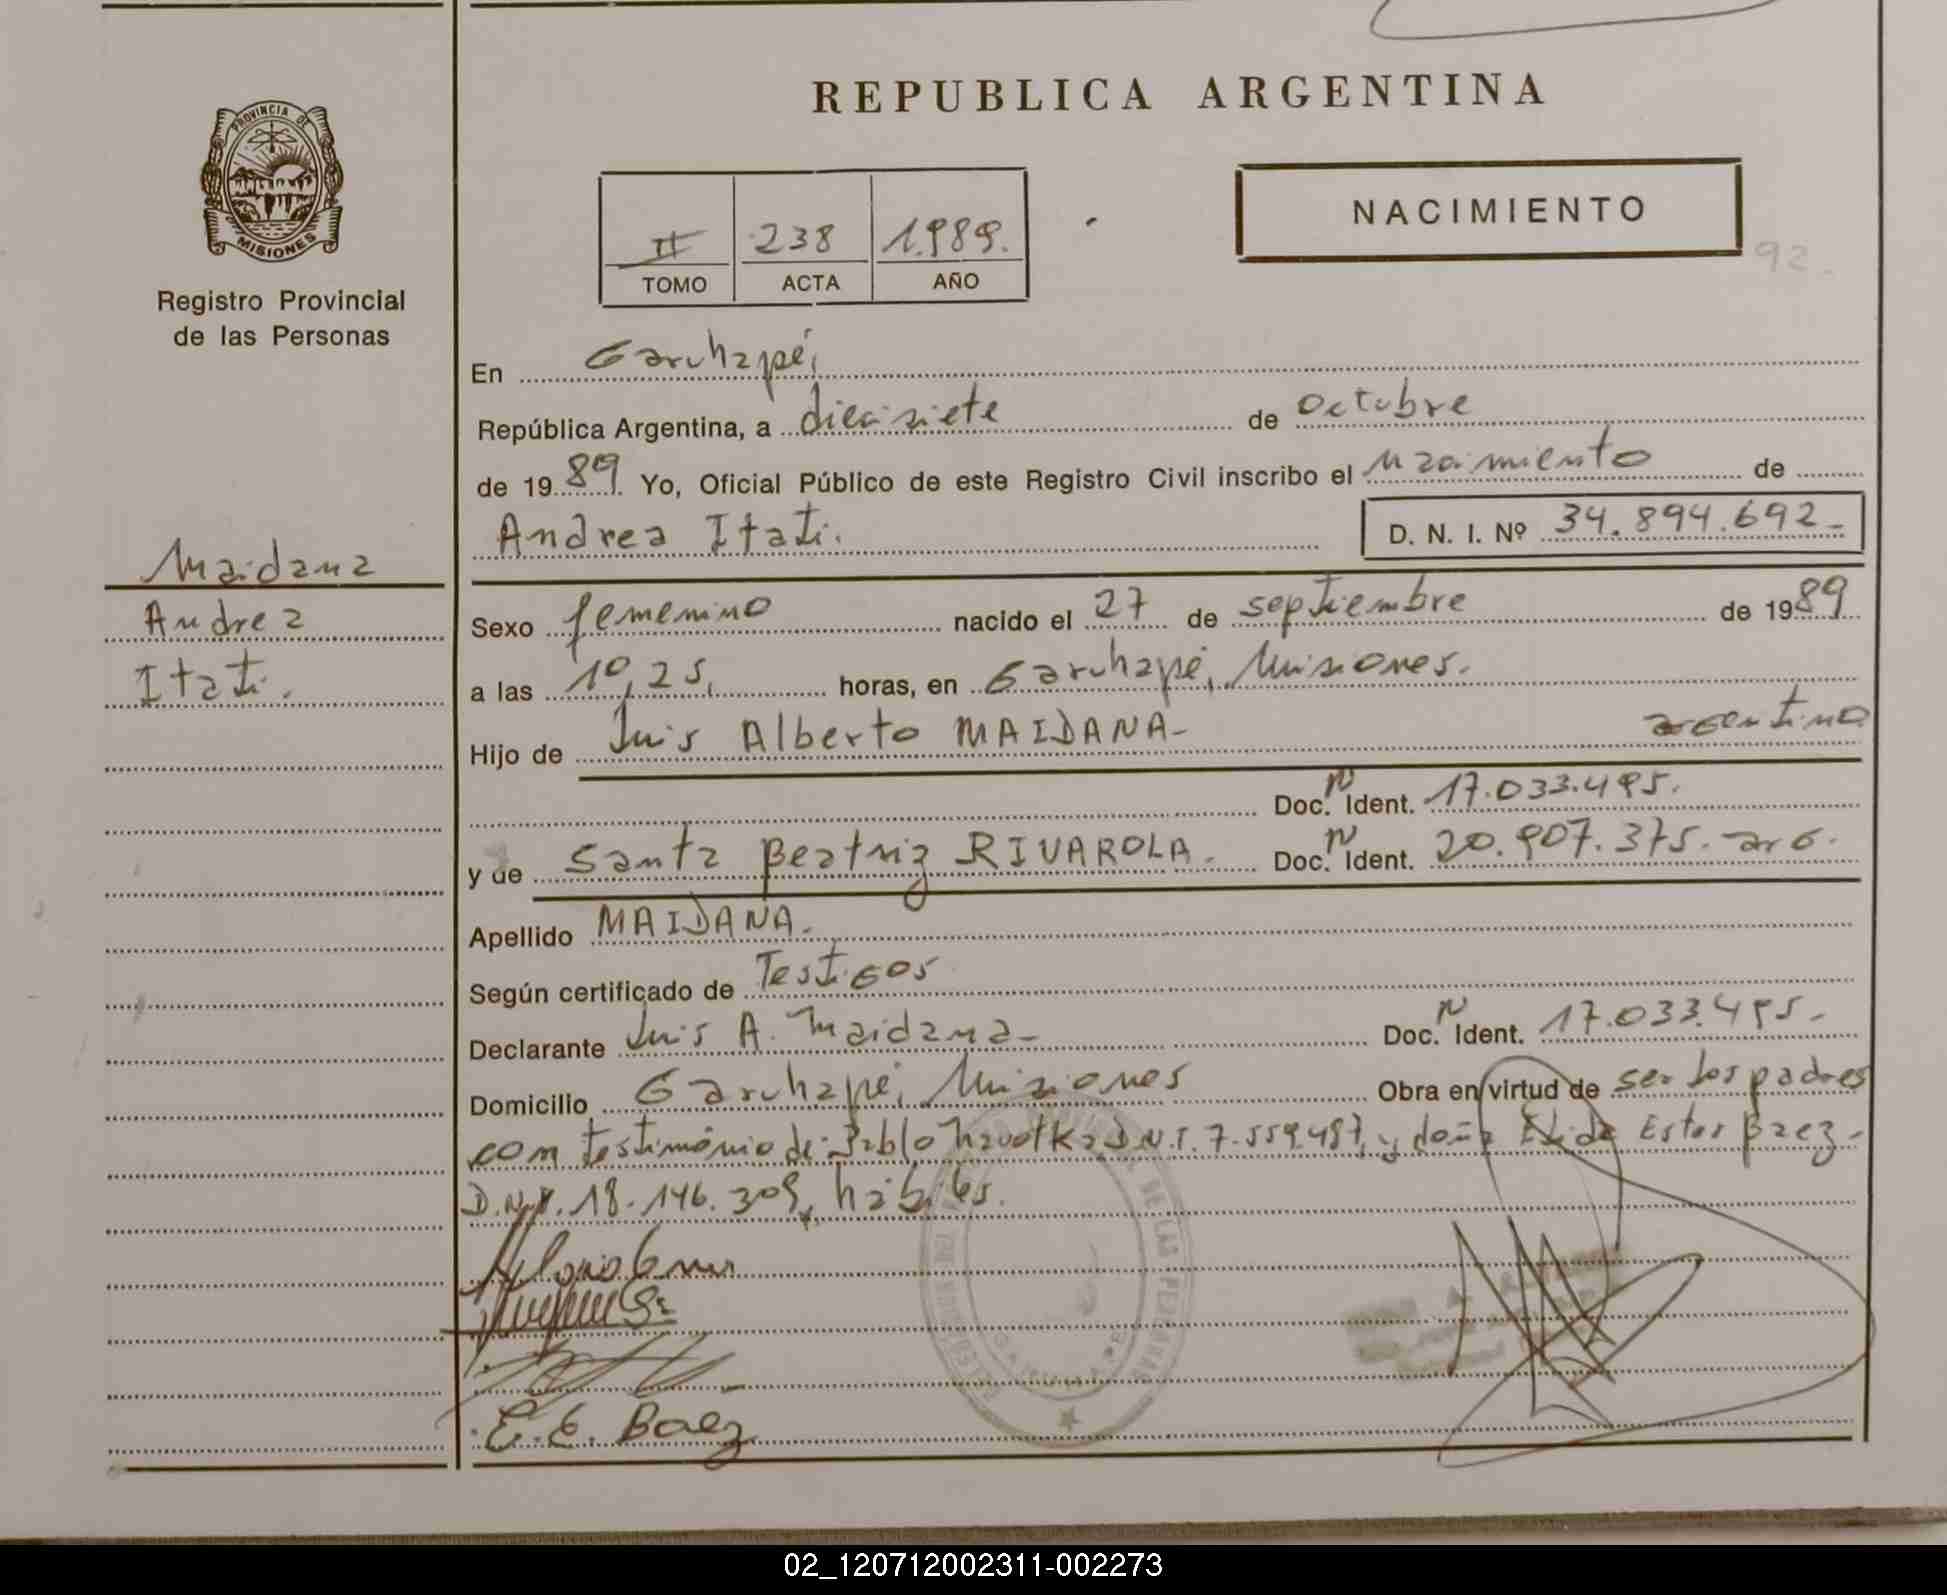 REPUBLICA ARGENTINA
PROVINCIA DE
MISIONES
Registro Provincial
de las Personas
NACIMIENTO
II 238 1.989.
TOMO ACTA AÑO
92.
En Garuhapé,
República Argentina, a diecisiete de octubre
de 1989. Yo, Oficial Público de este Registro Civil inscribo el nacimiento de
Andrea Itati. D. N. I. Nº 34.894.692-
Maidana
Andrea
Itati.
Sexo femenino nacido el 27 de septiembre de 1989
a las 10,25, horas, en Garuhapé, Misiones.
Hijo de Luis Alberto MAIDANA- argentino
Doc. N Ident. 17.033.495.
y de Santa Beatriz RIVAROLA. Doc. N Ident. 20.907.375. arg.
Apellido MAIDANA.
Según certificado de Testigos
Declarante Luis A. Maidana- Doc. N Ident. 17.033.495.
Domicilio Garuhapé, Misiones Obra en virtud de ser los padres
con testimonio de: Pablo D.N.I. 7.559.487, y doña Elida Ester Baez-
D.N.I. 18.146.309, hábiles.
DE LAS PERSONAS
GARUHAPE
E. E. Baez
02_120712002311-002273